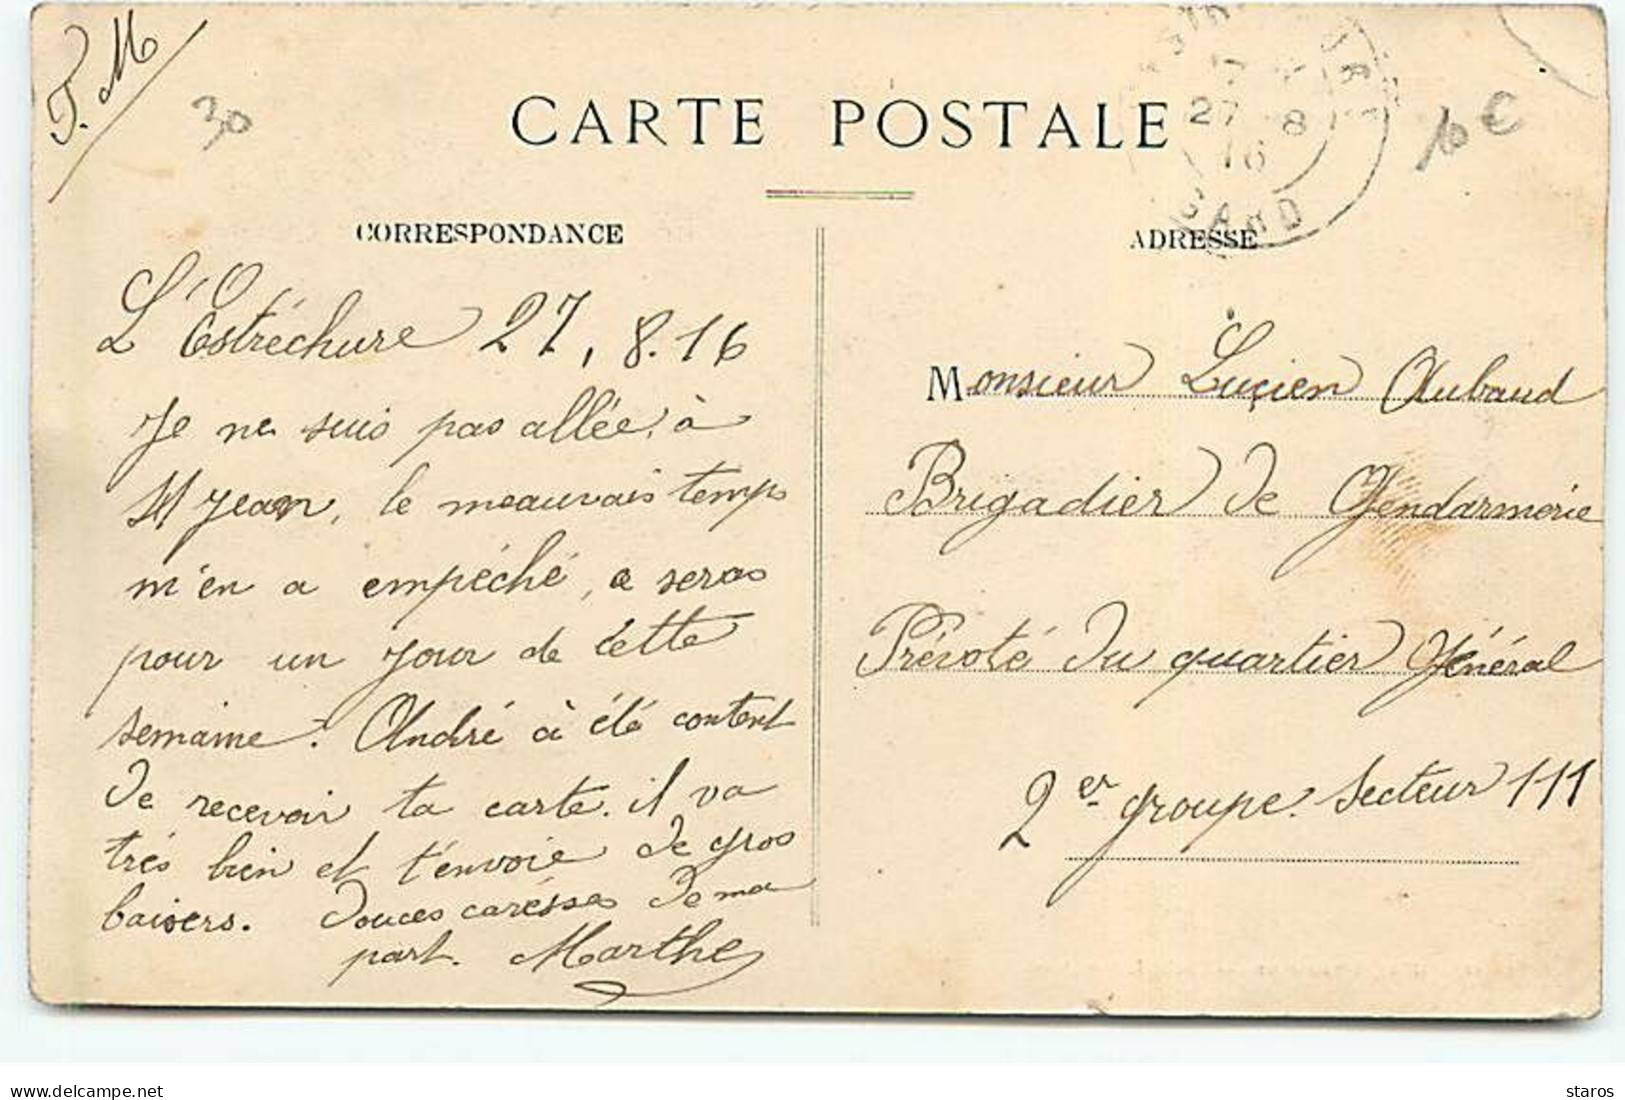 F. M
30
CARTE POSTALE
27 - 8
16
GARD
10 €
CORRESPONDANCE
L'Estréchure 27, 8.16
Je ne suis pas allée à
St Jean, le meauvais temps
m'en a empéché, a seras
pour un jour de cette
semaine. André à été content
de recevoir ta carte. il va
trés bien et t'envoie de gros
baisers. Douces caresses de ma
part. Marthe
ADRESSE
Monsieur Lucien Aubaud
Brigadier de Gendarmerie
Prévoté du quartier Général
2er groupe. Secteur 111
delcampe.net
staros